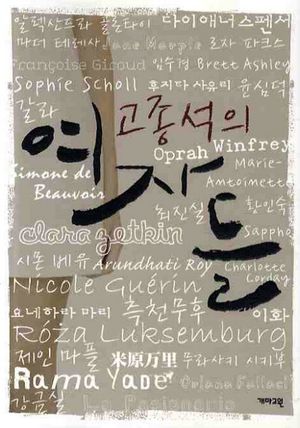 알렉산드라 콜론타이 다이애너 스펜서
마더 테레사 Jane Marple 로자 파크스
Françoise Giroud 임수경 Brett Ashley
Sophie Scholl 후지타 사유리 윤심덕
갈라 고종석의
여자들
Oprah Winfrey
Simone de Beauvoir
Marie-Antoinette
최진실 황인숙
clara zetkin Sappho
시몬 베유 Arundhati Roy Charlotte Corday
Nicole Guérin
요네하라 마리 측천무후 이화
Róza Luksemburg
제인 마플 米原万里 무라사키 시키부
Rama Yade Oriana Fallaci
강금실 La Pasionaria
개마고원